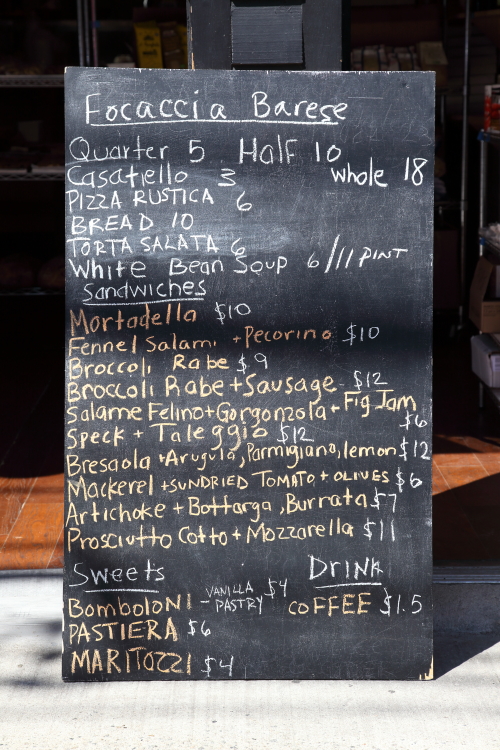 Focaccia Barese
Quarter 5 Half 10 whole 18
Casatiello 3
PIZZA RUSTICA 6
BREAD 10
TORTA SALATA 6
White Bean Soup 6/11 PINT
Sandwiches
Mortadella $10
Fennel Salami + Pecorino $10
Broccoli Rabe $9
Broccoli Rabe + Sausage $12
Salame Felino + Gorgonzola + Fig Jam $6
Speck + Taleggio $12
Bresaola + Arugula, Parmigiano, lemon $12
Mackerel + SUNDRIED TOMATO + OLIVES $6
Artichoke + Bottarga, Burrata $7
Prosciutto Cotto + Mozzarella $11
Sweets
BOMBOLONI - VANILLA PASTRY $4
PASTIERA $6
MARITOZZI $4
Drink
COFFEE $1.5